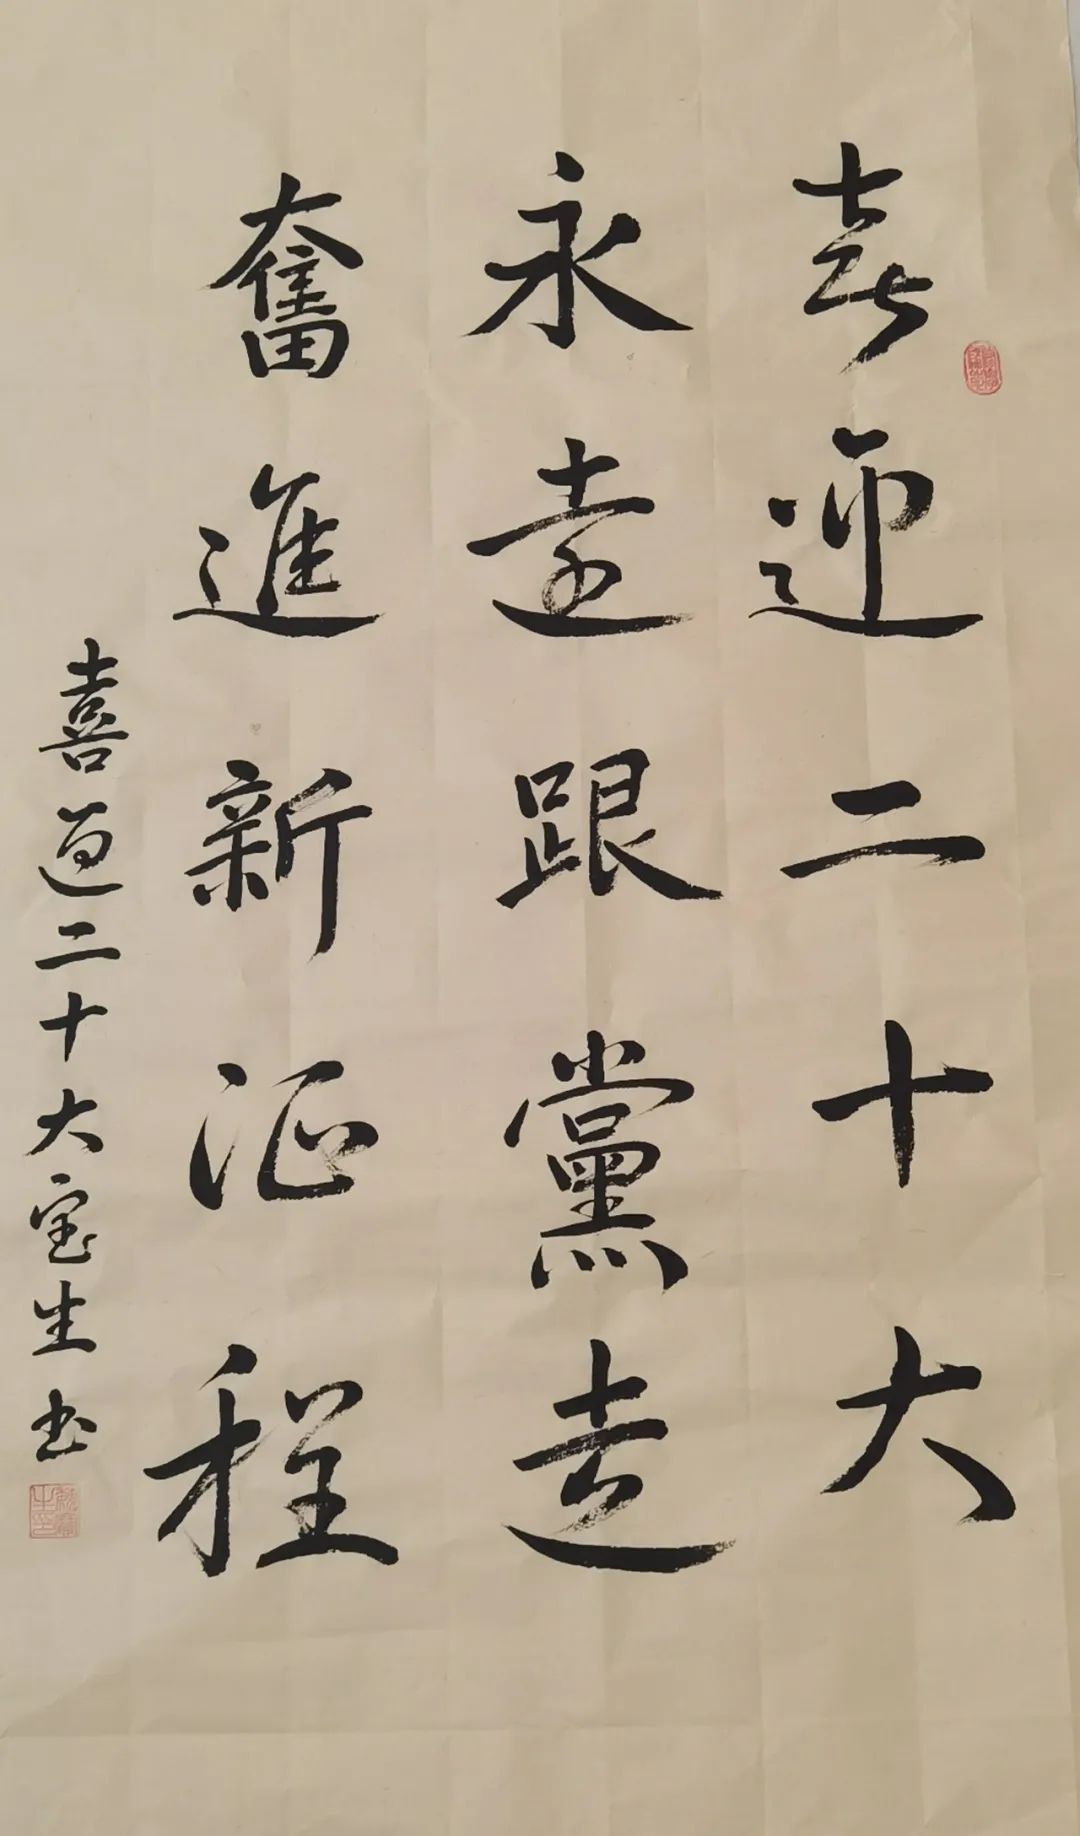 喜迎二十大
永遠跟黨走
奮進新征程
喜迎二十大宝生书